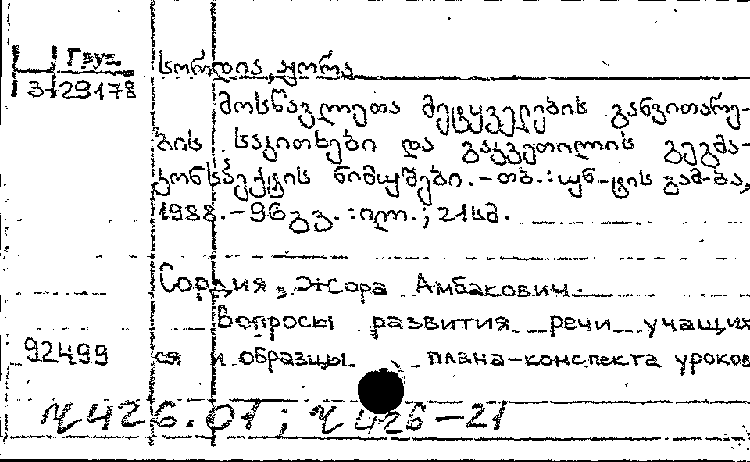 Груз.
3-29178
სორდია, ჟორა
მოსწავლეთა მეტყველების განვითარე-
ბის საკითხები და გაკვეთილის გეგმა-
კონსპექტის ნიმუშები. – თბ.: უნ-ტის გამ-ბა,
1988. – 96 გვ. : ილ. ; 21 სმ.
Сордия, Жора Амбакович.
Вопросы развития речи учащих
92499
ся и образцы плана-конспекта уроков
Ч 426.01 ; Ч 426-21